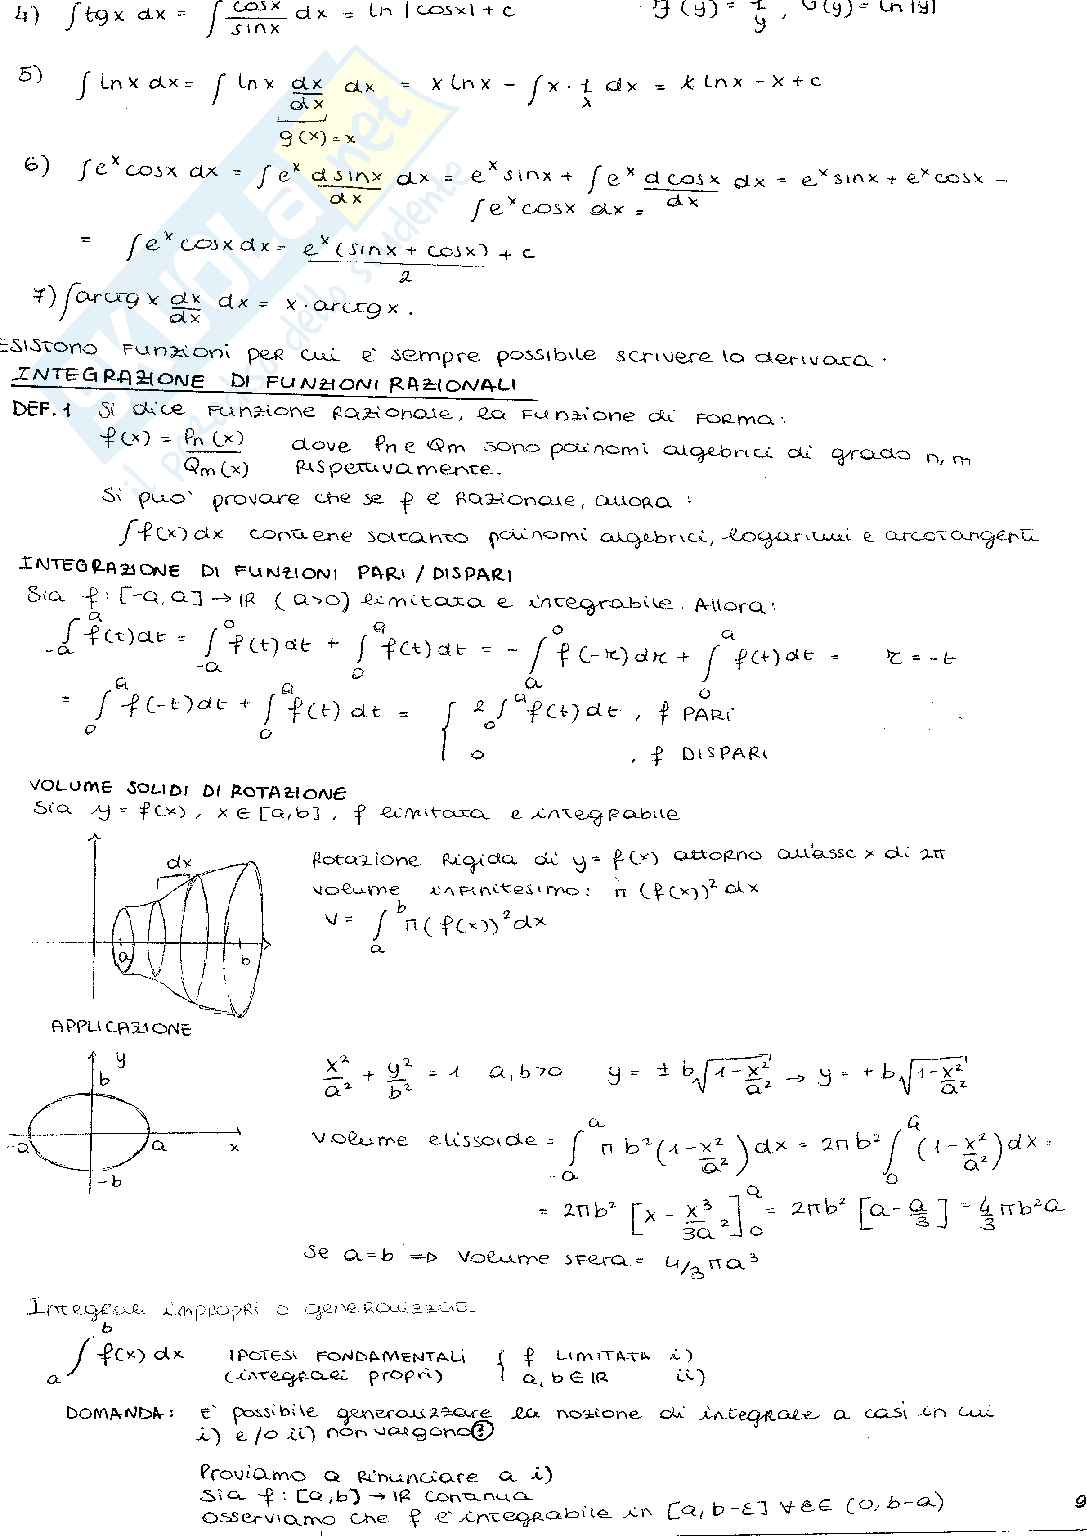 4) ∫tgx dx = ∫ cosx/sinx dx = ln |cosx| + c   g(y) = 1/y , G(y) = ln|y|
5) ∫ lnx dx = ∫ lnx dx/dx dx = x lnx - ∫ x · 1/x dx = x lnx - x + c
g(x) = x
6) ∫e^x cosx dx = ∫e^x d sinx/dx dx = e^x sinx + ∫e^x d cosx/dx dx = e^x sinx + e^x cosx -
∫e^x cosx dx =
= ∫e^x cosx dx = e^x (sinx + cosx)/2 + c
7) ∫arctg x dx/dx dx = x · arctg x .
ESISTONO FUNZIONI PER CUI E' sempre possibile scrivere la derivata .
INTEGRAZIONE DI FUNZIONI RAZIONALI
DEF. 1 Si dice FUNZIONE RAZIONALE, la FUNZIONE di FORMA:
f(x) = Pn(x)/Qm(x) dove Pn e Qm sono polinomi algebrici di grado n, m
RISPETTIVAMENTE.
Si puo' provare che se f e' RAZIONALE, allora :
∫f(x) dx contiene soltanto polinomi algebrici, logaritmi e arcotangenti
INTEGRAZIONE DI FUNZIONI PARI / DISPARI
Sia f: [-a, a] → IR (a>0) limitata e integrabile. Allora:
∫_{-a}^{a} f(t)dt = ∫_{-a}^{0} f(t)dt + ∫_{0}^{a} f(t)dt = - ∫_{a}^{0} f(-τ)dτ + ∫_{0}^{a} f(t)dt =   τ = -t
= ∫_{0}^{a} f(-t)dt + ∫_{0}^{a} f(t) dt = { 2 ∫_{0}^{a} f(t) dt , f PARI
0 , f DISPARI
VOLUME SOLIDI DI ROTAZIONE
Sia y = f(x) , x ∈ [a, b] , f limitata e integrabile
dx
a
b
Rotazione Rigida di y = f(x) attorno all'asse x di 2π
volume infinitesimo: π (f(x))² dx
V = ∫_{a}^{b} π (f(x))² dx
APPLICAZIONE
y
b
-a a x
-b
x²/a² + y²/b² = 1   a, b > 0   y = ± b√(1 - x²/a²) → y = + b√(1 - x²/a²)
Volume elissoide = ∫_{-a}^{a} π b² (1 - x²/a²) dx = 2πb² ∫_{0}^{a} (1 - x²/a²) dx =
= 2πb² [x - x³/3a²]_{0}^{a} = 2πb² [a - a/3] = 4/3 πb²a
Se a = b ⇒ Volume sfera = 4/3 πa³
Integrali impropri o generalizzati.
∫_{a}^{b} f(x) dx   IPOTESI FONDAMENTALI { f LIMITATA i)
(integrali propri) a, b ∈ IR ii)
DOMANDA: E' possibile generalizzare la nozione di integrale a casi in cui
i) e/o ii) non valgono?
Proviamo a Rinunciare a i)
Sia f: [a, b) → IR continua
osserviamo che f e' integrabile in [a, b - ε] ∀ε ∈ (0, b - a)
9
SKUOLA.net
il paradiso dello studente